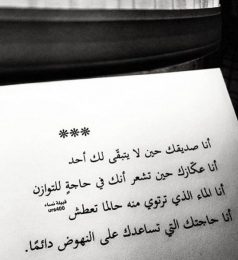 ***
أنا صديقك حين لا يتبقّى لك أحد
أنا عكّازك حين تشعر أنك في حاجةٍ للتوازن
أنا الماء الذي ترتوي منه حالما تعطش
قبيلة نساء
um400
أنا حاجتك التي تساعدك على النهوض دائمًا.